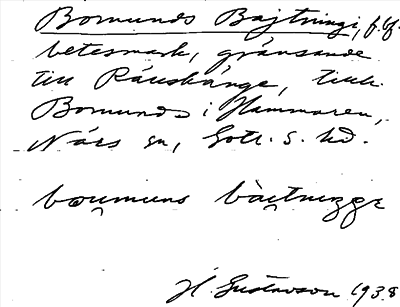 Bomunds Bajtningi, f.lf.
betesmark, gränsande
till Räushänge, tillh.
Bomunds i Hammaren,
Närs sn, Gotl. S. hd.
boumuns bàɛtnɪŋgɛ
H. Gustavson 1938